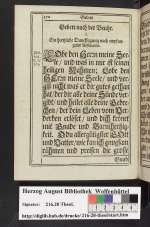 Gebett nach der Beicht.
LObe den HErrn meine See-
le, und was in mir ist seinen
heiligen Nahmen; Lobe den
HErrn meine Seele, und ver-
giß nicht was er dir guts gethan
hat, der dir alle deine Sünde ver-
gibt, und heilet alle deine Gebre-
chen, der dein Leben vom Ver-
derben erlöset, und dich krönet
mit Gnade und Barmhertzig-
keit.
und Vatter, wie kan ich gnugsam
rühmen und preisen die grosse
Herzog August Bibliothek Wolfenbüttel
Signatur: 216.20 Theol.
http://diglib.hab.de/drucke/216-20-theol/start.htm